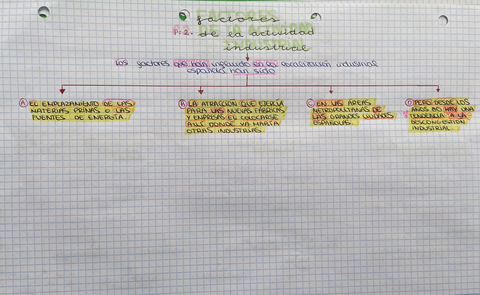 factores
P.2. de la actividad
industrial
Los factores que han influido en la localización industrial
española han sido
A EL EMPLAZAMIENTO DE LAS
MATERIAS PRIMAS O LAS
FUENTES DE ENERGÍA.
B LA ATRACCIÓN QUE EJERCÍA
PARA LAS NUEVAS FÁBRICAS
Y EMPRESAS EL COLOCARSE
ALLÍ DONDE YA HABÍA
OTRAS INDUSTRIAS.
C EN LAS ÁREAS
METROPOLITANAS DE
LAS GRANDES CIUDADES
ESPAÑOLAS.
D PERO DESDE LOS
AÑOS 80 HAY UNA
TENDENCIA A LA
DESCONGESTIÓN
INDUSTRIAL